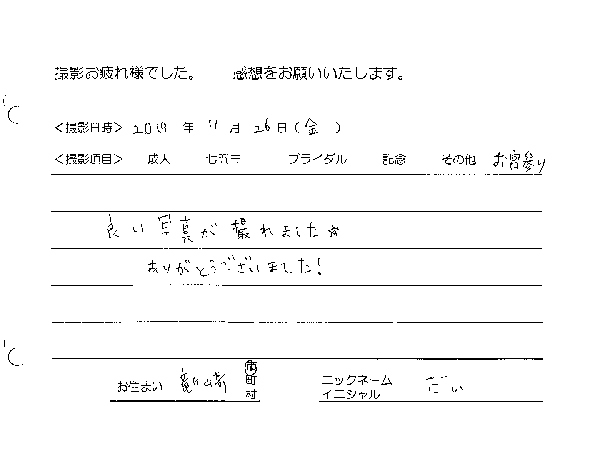 撮影お疲れ様でした。 感想をお願いいたします。
<撮影日時> 年 月 26日(金)
<撮影項目> 成人 七五三 ブライダル 記念 その他 お宮参り
良い写真が撮れました☆
ありがとうございました!
お住まい 竜ヶ崎 市町村
ニックネーム
イニシャル だい